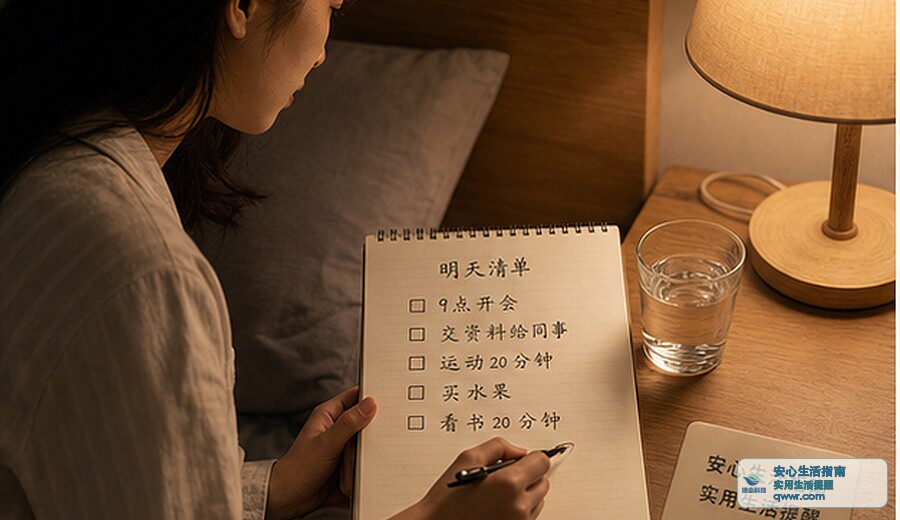 明天清单
9点开会
交资料给同事
运动20分钟
买水果
看书20分钟
安心生
实用生活提醒
安心生活指南
实用生活提醒
qwwr.com